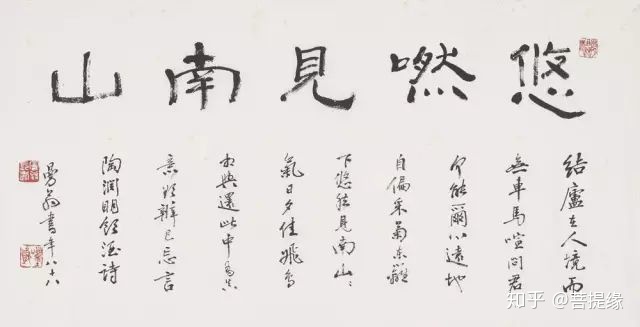 悠嘫見南山
結廬在人境而
無車馬喧問君
何能爾心遠地
自偏采菊東籬
下悠然見南山〻
氣日夕佳飛鳥
相與還此中有真
意欲辯已忘言
陶淵明飲酒詩
曼翁書年八十八
知乎 @菩提缘